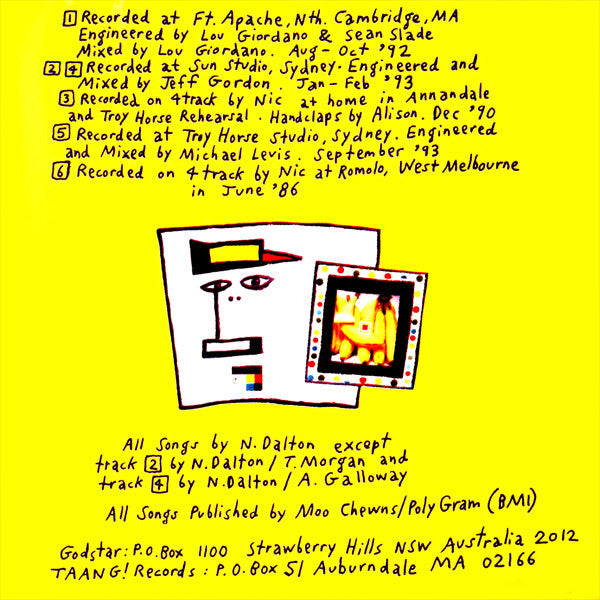 1 Recorded at Ft. Apache, Nth. Cambridge, MA
Engineered by Lou Giordano & Sean Slade
Mixed by Lou Giordano. Aug - Oct '92
2 4 Recorded at Sun Studio, Sydney. Engineered and
Mixed by Jeff Gordon. Jan - Feb '93
3 Recorded on 4 track by Nic at home in Annandale
and Troy Horse Rehearsal. Handclaps by Alison. Dec '90
5 Recorded at Troy Horse Studio, Sydney. Engineered
and Mixed by Michael Levis. September '93
6 Recorded on 4 track by Nic at Romolo, West Melbourne
in June '86
All Songs by N. Dalton except
track 2 by N. Dalton / T. Morgan and
track 4 by N. Dalton / A. Galloway
All Songs Published by Moo Chewns/PolyGram (BMI)
Godstar: P.O. Box 1100 Strawberry Hills NSW Australia 2012
TAANG! Records: P.O. Box 51 Auburndale MA 02166